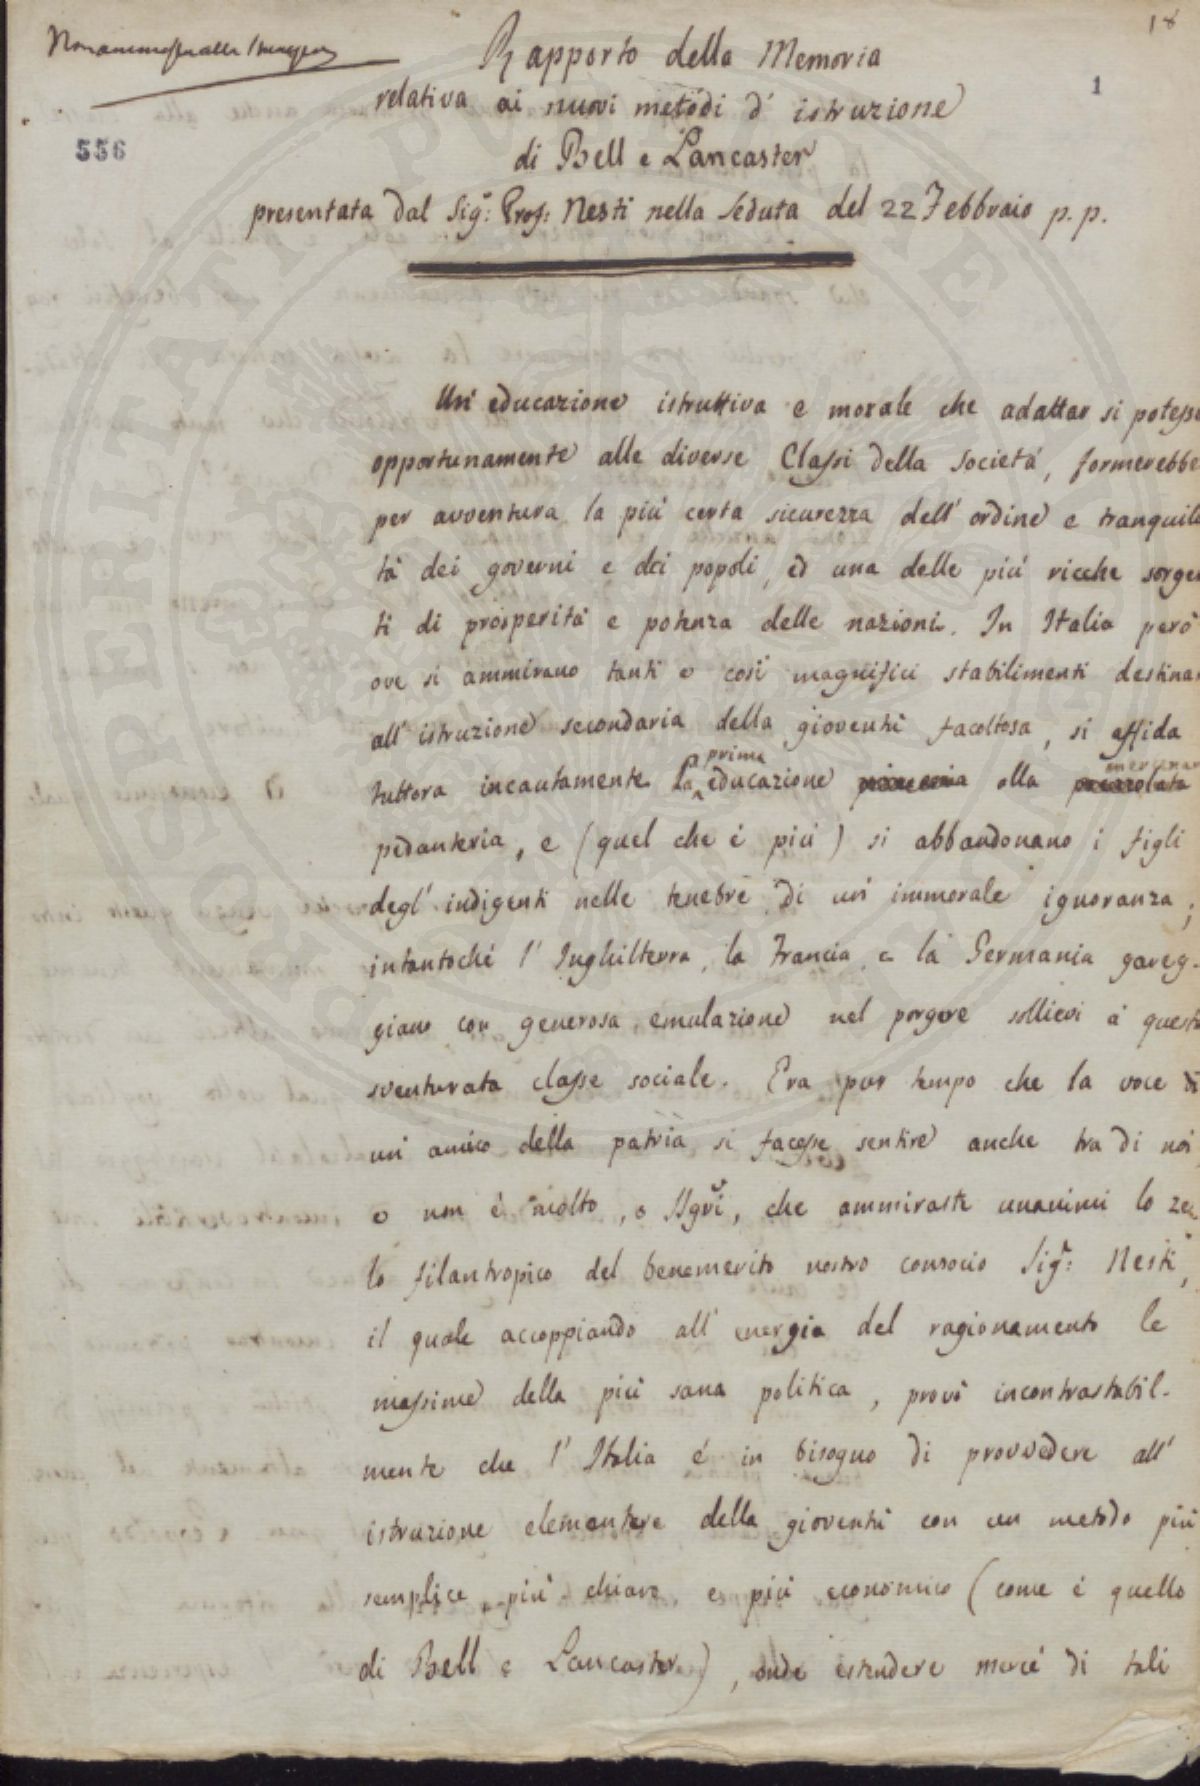 18
Non ammessa alla stampa
1
556
Rapporto della Memoria
relativa ai nuovi metodi d' istruzione
di Bell e Lancaster
presentata dal Sig.r Prof: Nesti nella Seduta del 22 Febbraio p. p.
Un' educazione istruttiva e morale che adattar si potesse
opportunamente alle diverse Classi della Società, formerebbe
per avventura la più certa sicurezza dell' ordine e tranquili
tà dei governi e dei popoli, ed una delle più ricche sorgen
ti di prosperità e potenza delle nazioni. In Italia però
ove si ammirano tanti e così magnifici stabilimenti destinati
all' istruzione secondaria della gioventù facoltosa, si affida
prima
tuttora incautamente la educazione alla
pedanteria, e (quel che è più) si abbandonano i figli
degl' indigenti nelle tenebre di un' immorale ignoranza;
intantochè l' Inghilterra, la Francia, e la Germania gareg-
giano con generosa emulazione nel porgere sollievi a questa
sventurata classe sociale. Era pur tempo che la voce di
un' amico della patria si facesse sentire anche tra di noi
e non è molto, o Sig.ri, che ammiraste unanimi lo ze
lo filantropico del benemerito nostro consocio Sig.r Nesti,
il quale accoppiando all' energia del ragionamento le
massime della più sana politica, provò incontrastabil-
mente che l' Italia è in bisogno di provvedere all'
istruzione elementare della gioventù con un metodo più
semplice, più chiaro, e più economico (come è quello
di Bell e Lancaster), onde estendere mercé di tali
PROSPERITATI PUBLICAE